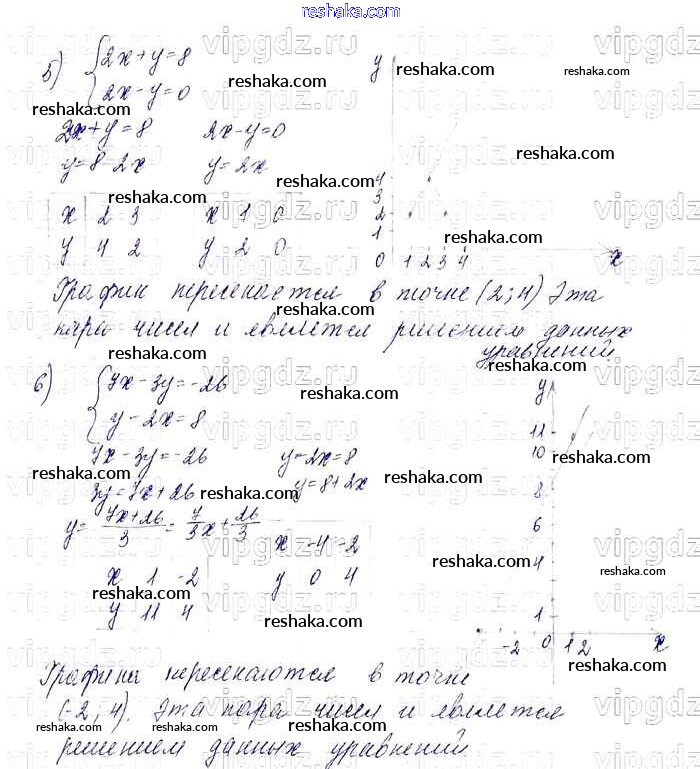 5) { 2x + y = 8
2x - y = 0
2x + y = 8    2x - y = 0
y = 8 - 2x    y = 2x
x 2 3    x 1 0
y 4 2    y 2 0
y
4
3
2
1
0 1 2 3 4 x
График пересекается в точке (2; 4) Эта
пара чисел и является решением данных
уравнений
6) { 7x - 3y = -26
y - 2x = 8
7x - 3y = -26    y - 2x = 8
3y = 7x + 26    y = 8 + 2x
y = (7x + 26)/3 = 7/3 x + 26/3
x 1 -2    x -4 -2
y 11 4    y 0 4
y
11
10
8
6
4
1
-2 0 1 2 x
Графики пересекаются в точке
(-2; 4). Эта пара чисел и является
решением данных уравнений
reshaka.com
vipgdz.ru